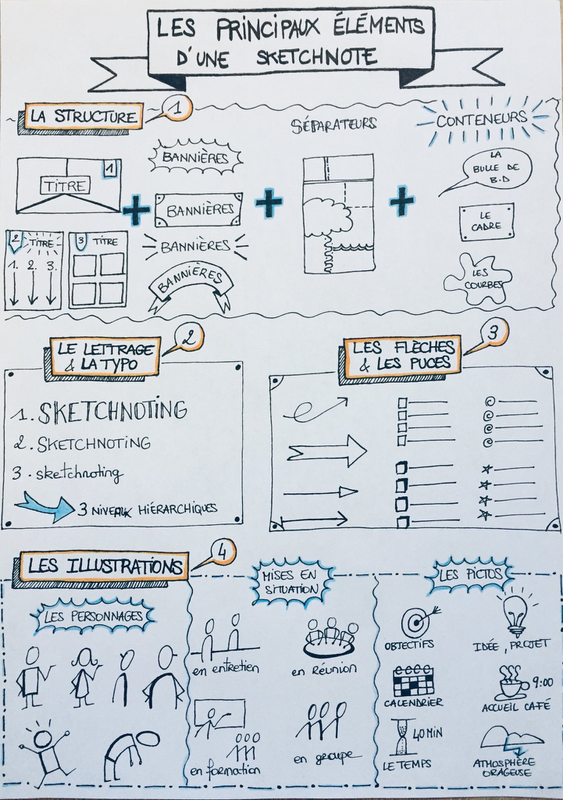 LES PRINCIPAUX ÉLÉMENTS
D'UNE SKETCHNOTE
LA STRUCTURE
1
SÉPARATEURS
CONTENEURS
1
TITRE
2 TITRE
1. 2. 3.
3 TITRE
+
BANNIÈRES
BANNIÈRES
BANNIÈRES
BANNIÈRES
+
+
LA
BULLE DE
B.D
LE
CADRE
LES
COURBES
LE LETTRAGE
& LA TYPO
2
1. SKETCHNOTING
2. SKETCHNOTING
3. sketchnoting
3 NIVEAUX HIÉRARCHIQUES
LES FLÈCHES
& LES PUCES
3
LES ILLUSTRATIONS
4
LES PERSONNAGES
MISES EN
SITUATION
en entretien
en réunion
en formation
en groupe
LES PICTOS
OBJECTIFS
IDÉE, PROJET
CALENDRIER
9:00
ACCUEIL CAFÉ
40 MIN
LE TEMPS
ATMOSPHÈRE
ORAGEUSE